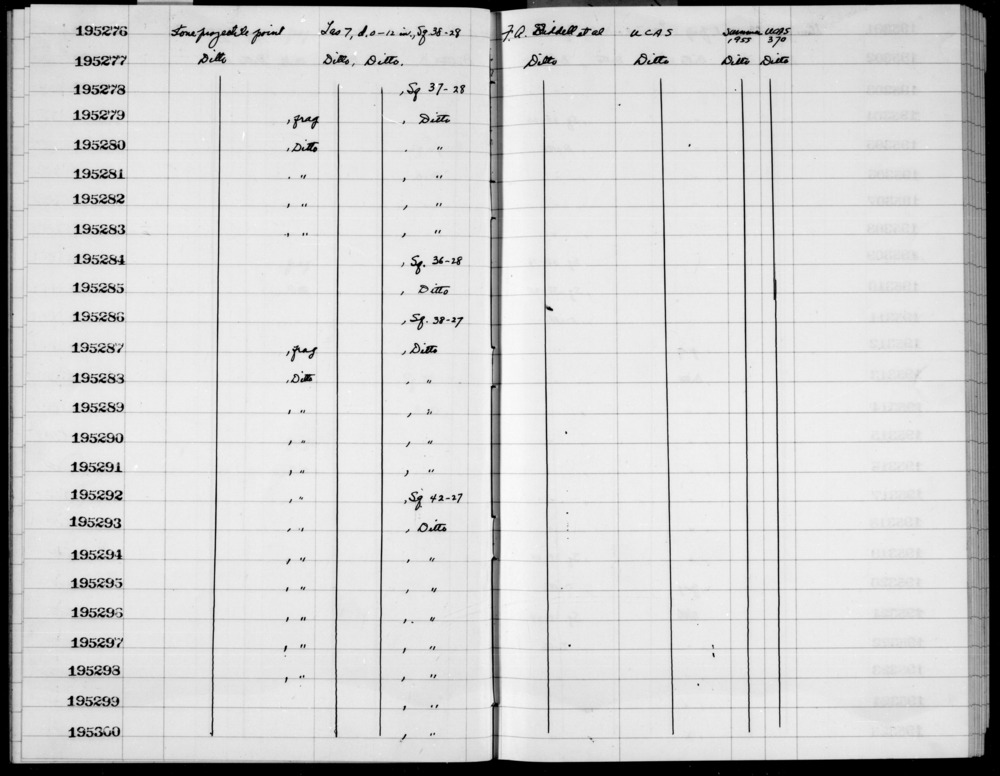 195276 Stone projectile point Las 7, d. 0-12 in., Sq 38-28 F. A. Riddell et al UCAS Summer 1955 UCAS 370
195277 Ditto Ditto, Ditto. Ditto Ditto Ditto Ditto
195278 , Sq 37-28
195279 , frag , Ditto
195280 , Ditto . "
195281 . " , "
195282 , " , "
195283 , " , "
195284 , Sq. 36-28
195285 , Ditto
195286 , Sq. 38-27
195287 , frag , Ditto
195288 , Ditto , "
195289 , " , "
195290 , " , "
195291 , " , "
195292 , " , Sq 42-27
195293 , " , Ditto
195294 , " , "
195295 , " , "
195296 , " , "
195297 , " , "
195298 , " , "
195299 , "
195300 , "